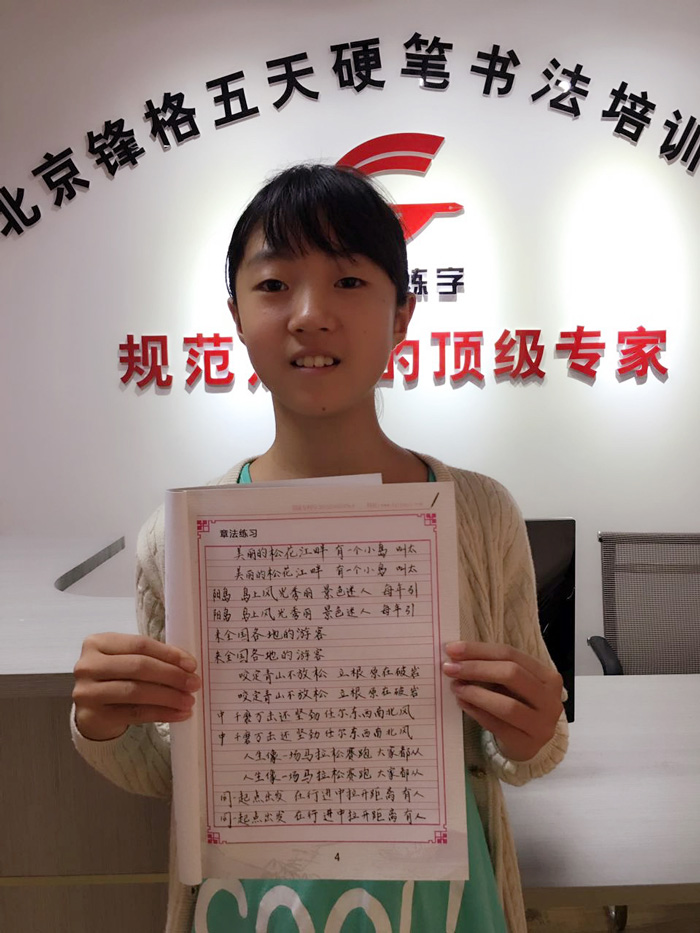 北京锋格五天硬笔书法培训
练字
规范
的顶级专家
章法练习
美丽的松花江畔 有一个小岛 叫太
美丽的松花江畔 有一个小岛 叫太
阳岛 岛上风光秀丽 景色迷人 每年引
阳岛 岛上风光秀丽 景色迷人 每年引
来全国各地的游客
来全国各地的游客
咬定青山不放松 立根原在破岩
咬定青山不放松 立根原在破岩
中 千磨万击还坚劲 任尔东西南北风
中 千磨万击还坚劲 任尔东西南北风
人生像一场马拉松赛跑 大家都从
人生像一场马拉松赛跑 大家都从
同一起点出发 在行进中拉开距离 有人
同一起点出发 在行进中拉开距离 有人
4
COOL